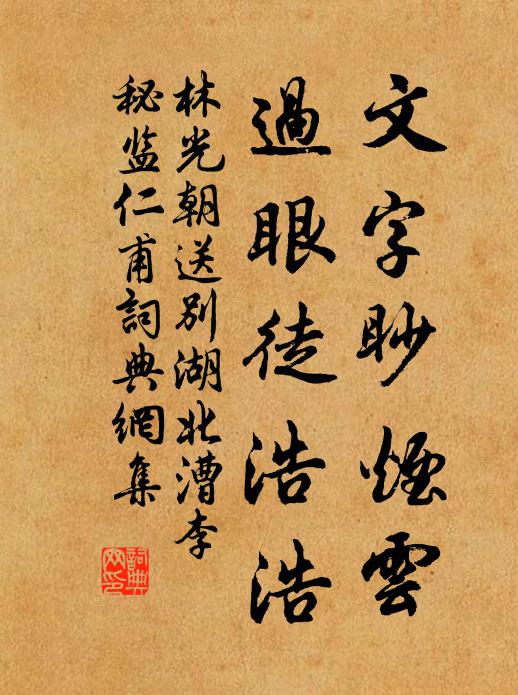 文字眇煙雲
過眼徒浩浩
林光朝送別湖北漕李
秘监仁甫詞典網集
詞典网印